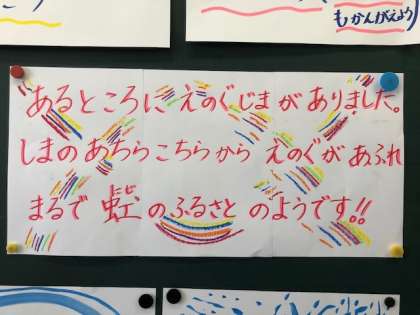 もかんがえよう
あるところに えのぐじまが ありました。
しまのあちらこちらから えのぐが あふれ
まるで 虹 のふるさと のようです!!